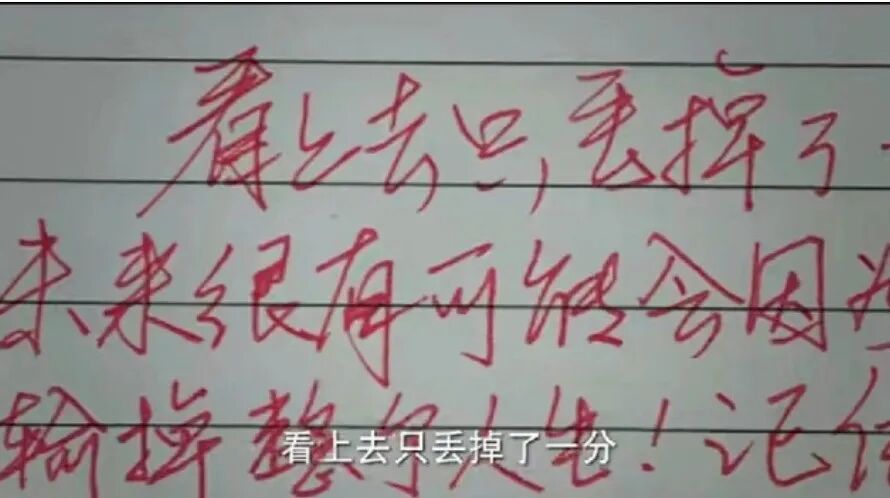 看上去只丢掉了一
未来很有可能会因为
输掉整个人生！记住
看上去只丢掉了一分